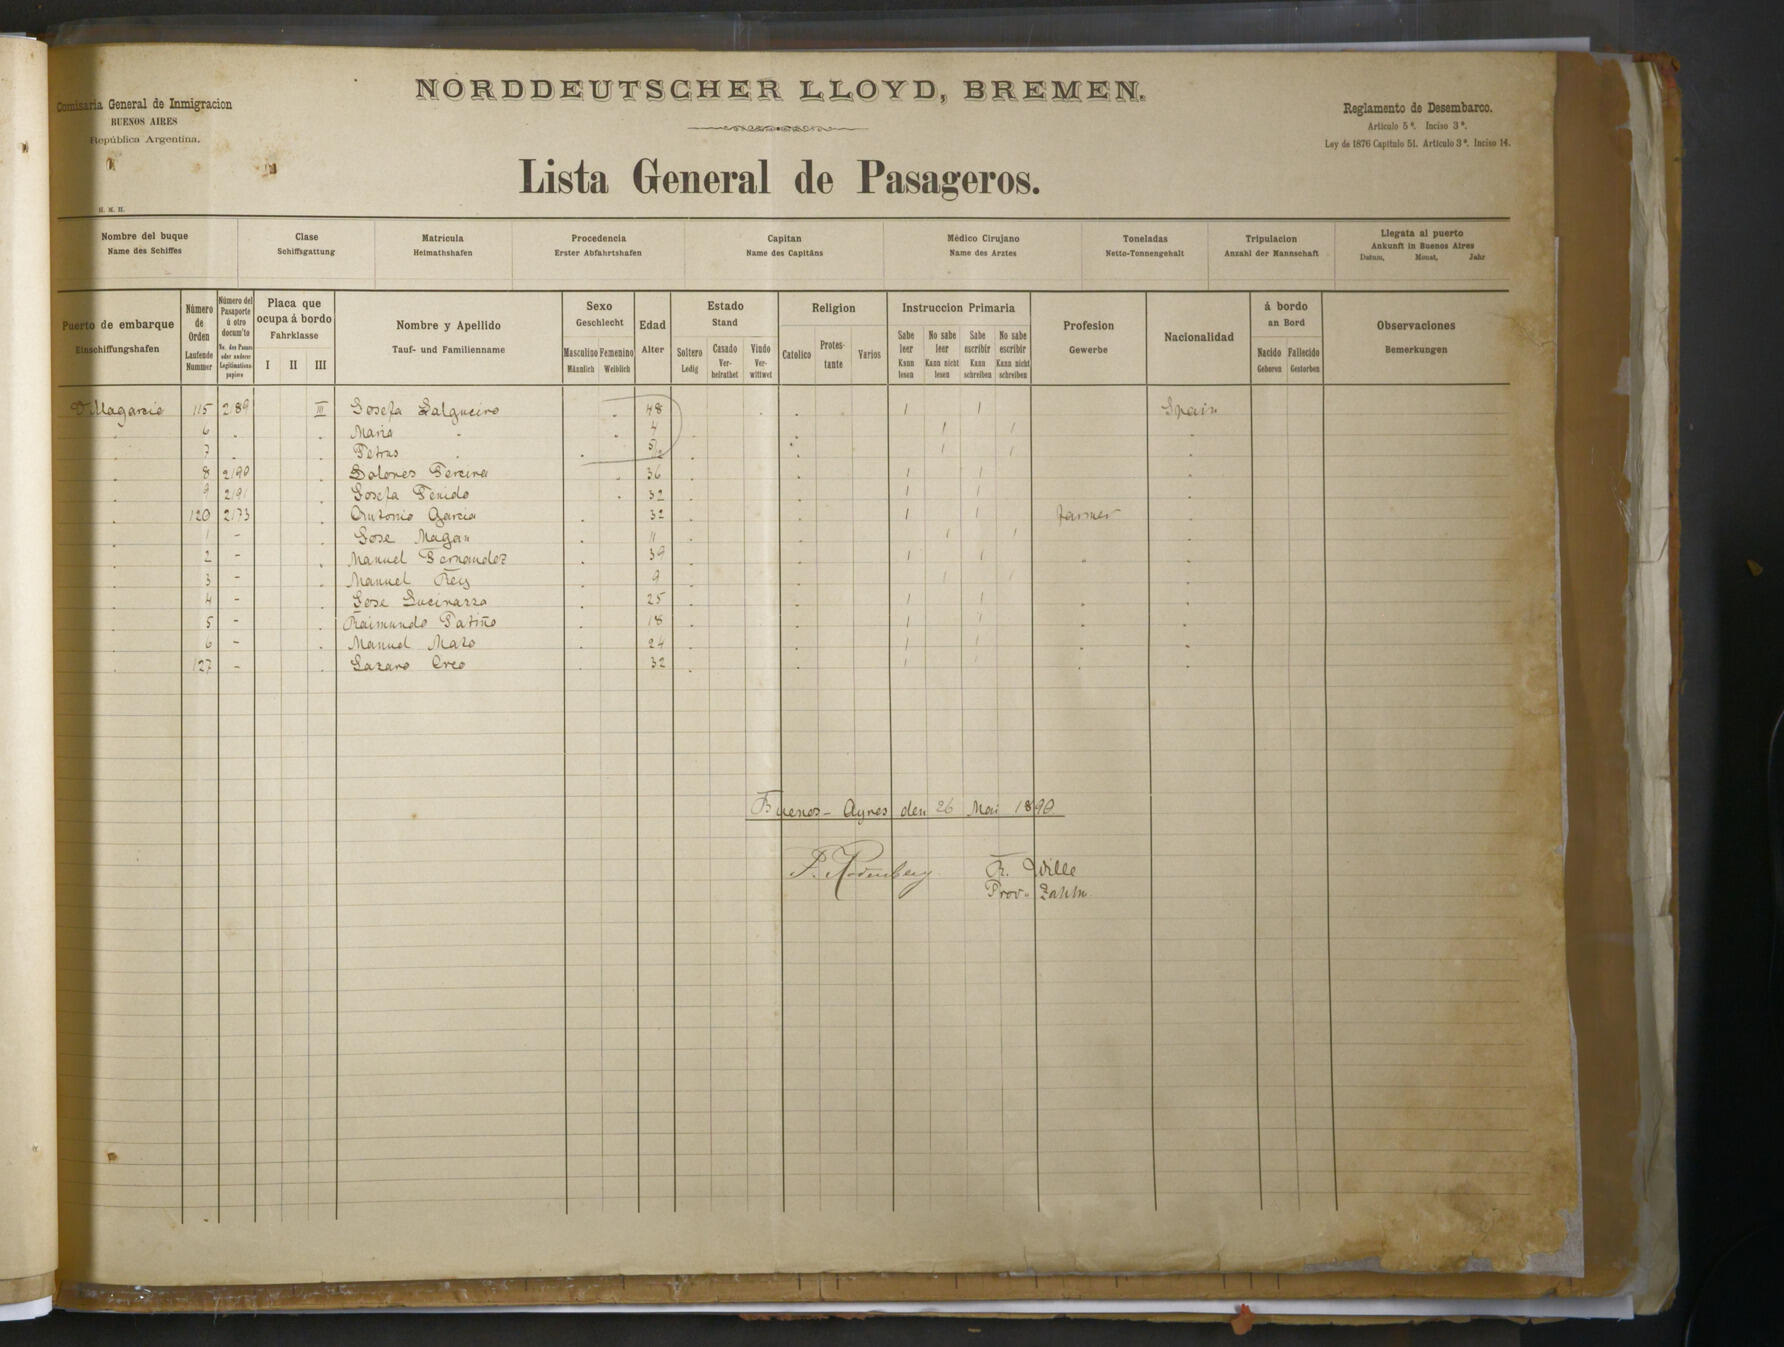 Comisaria General de Inmigracion
BUENOS AIRES
República Argentina.
H. M. H.
NORDDEUTSCHER LLOYD, BREMEN.
Lista General de Pasageros.
Reglamento de Desembarco.
Articulo 5º. Inciso 3º.
Ley de 1876 Capitulo 51. Articulo 3º. Inciso 14.
Nombre del buque Clase Matricula Procedencia Capitan Médico Cirujano Toneladas Tripulacion Llegata al puerto
Name des Schiffes Schiffsgattung Heimathshafen Erster Abfahrtshafen Name des Capitäns Name des Arztes Netto-Tonnengehalt Anzahl der Mannschaft Ankunft in Buenos Aires
Datum, Monat, Jahr
Puerto de embarque
Einschiffungshafen
Número de Orden
Laufende Nummer
Número del Pasaporte ú otro docum'to
No. des Passes oder anderer Legitimations-papiere
Placa que ocupa á bordo
Fahrklasse
I II III
Nombre y Apellido
Tauf- und Familienname
Sexo
Geschlecht
Masculino Femenino
Männlich Weiblich
Edad
Alter
Estado
Stand
Soltero Casado Viudo
Ledig Ver-heirathet Ver-wittwet
Religion
Catolico Protes-tante Varios
Instruccion Primaria
Sabe leer No sabe leer Sabe escribir No sabe escribir
Kann lesen Kann nicht lesen Kann schreiben Kann nicht schreiben
Profesion
Gewerbe
Nacionalidad
á bordo
an Bord
Nacido Fallecido
Geboren Gestorben
Observaciones
Bemerkungen
115 2189 III Josefa Salgueiro 48 / / Spain
6 Maria 4 / /
7 Petrus / /
8 2190 Dolores Pereira 36 / /
9 2191 Josefa Penido 32 / /
120 2173 Antonio Garcia 32 / / farmer
1 - Jose Magan 11 / /
2 - Manuel Fernandez 39 / /
3 - Manuel Rey 9 / /
4 - Jose 25 / /
5 - Raimundo Patiño 18 / /
6 - Manuel Mato 24 / /
127 - Lazaro Oreo 32 / /
Buenos-Ayres den 26 Mai 1890
Wille